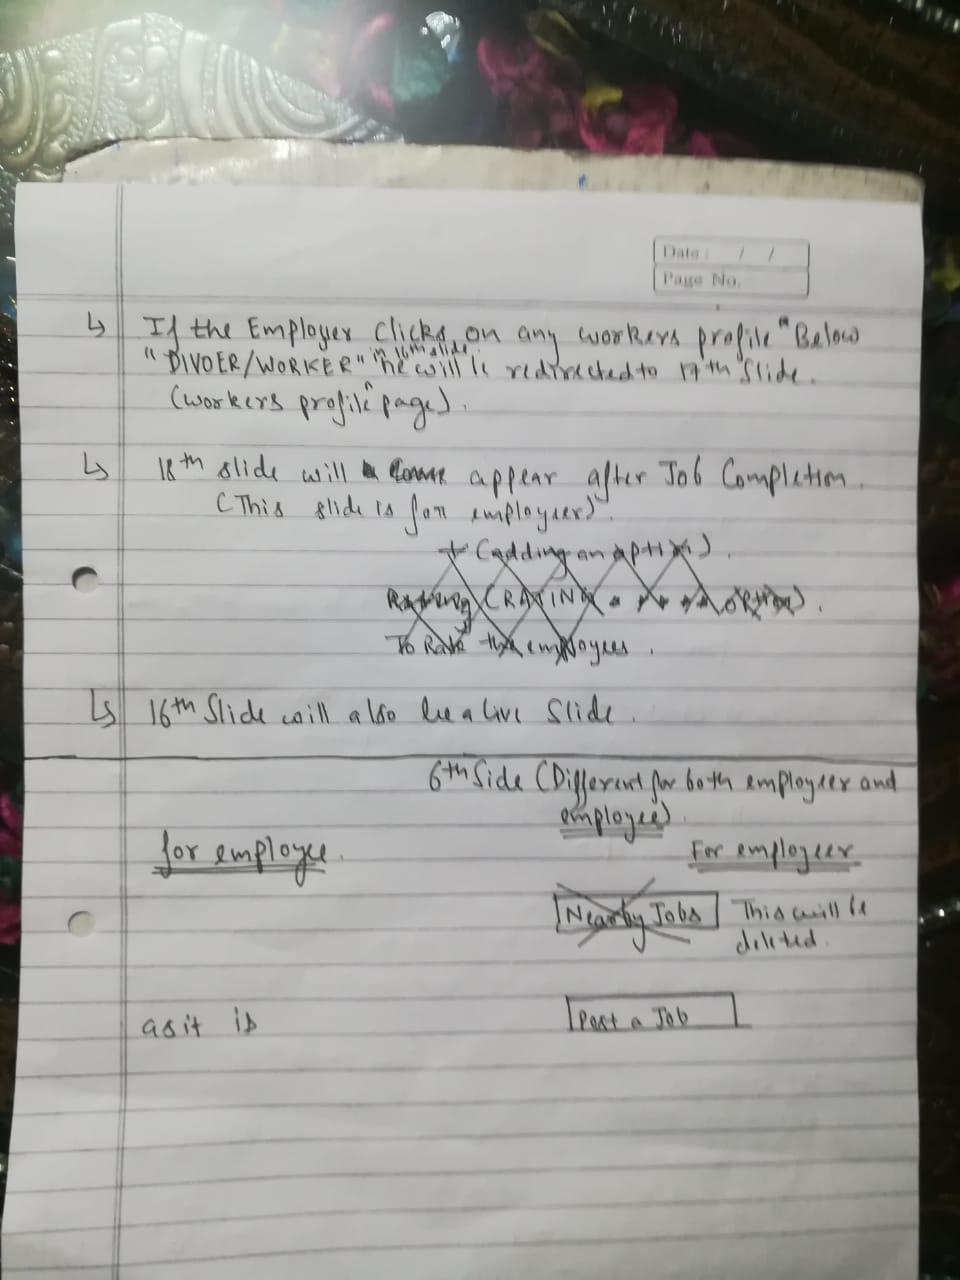 Date : / /
Page No.
↳ If the Employer clicks on any workers profile "Below
"DIVOER/WORKER" in 16th slide he will be redirected to 17th slide.
(workers profile page).
↳ 18th slide will appear after Job Completion.
(This slide is for employeer).
+ (adding an option).
Rating (RATING OPTION).
To Rate the employees.
↳ 16th Slide will also be a live slide.
6th Side (Different for both employeer and
employee).
for employee.
For employeer
Nearby Jobs This will be
deleted.
as it is
Post a Job